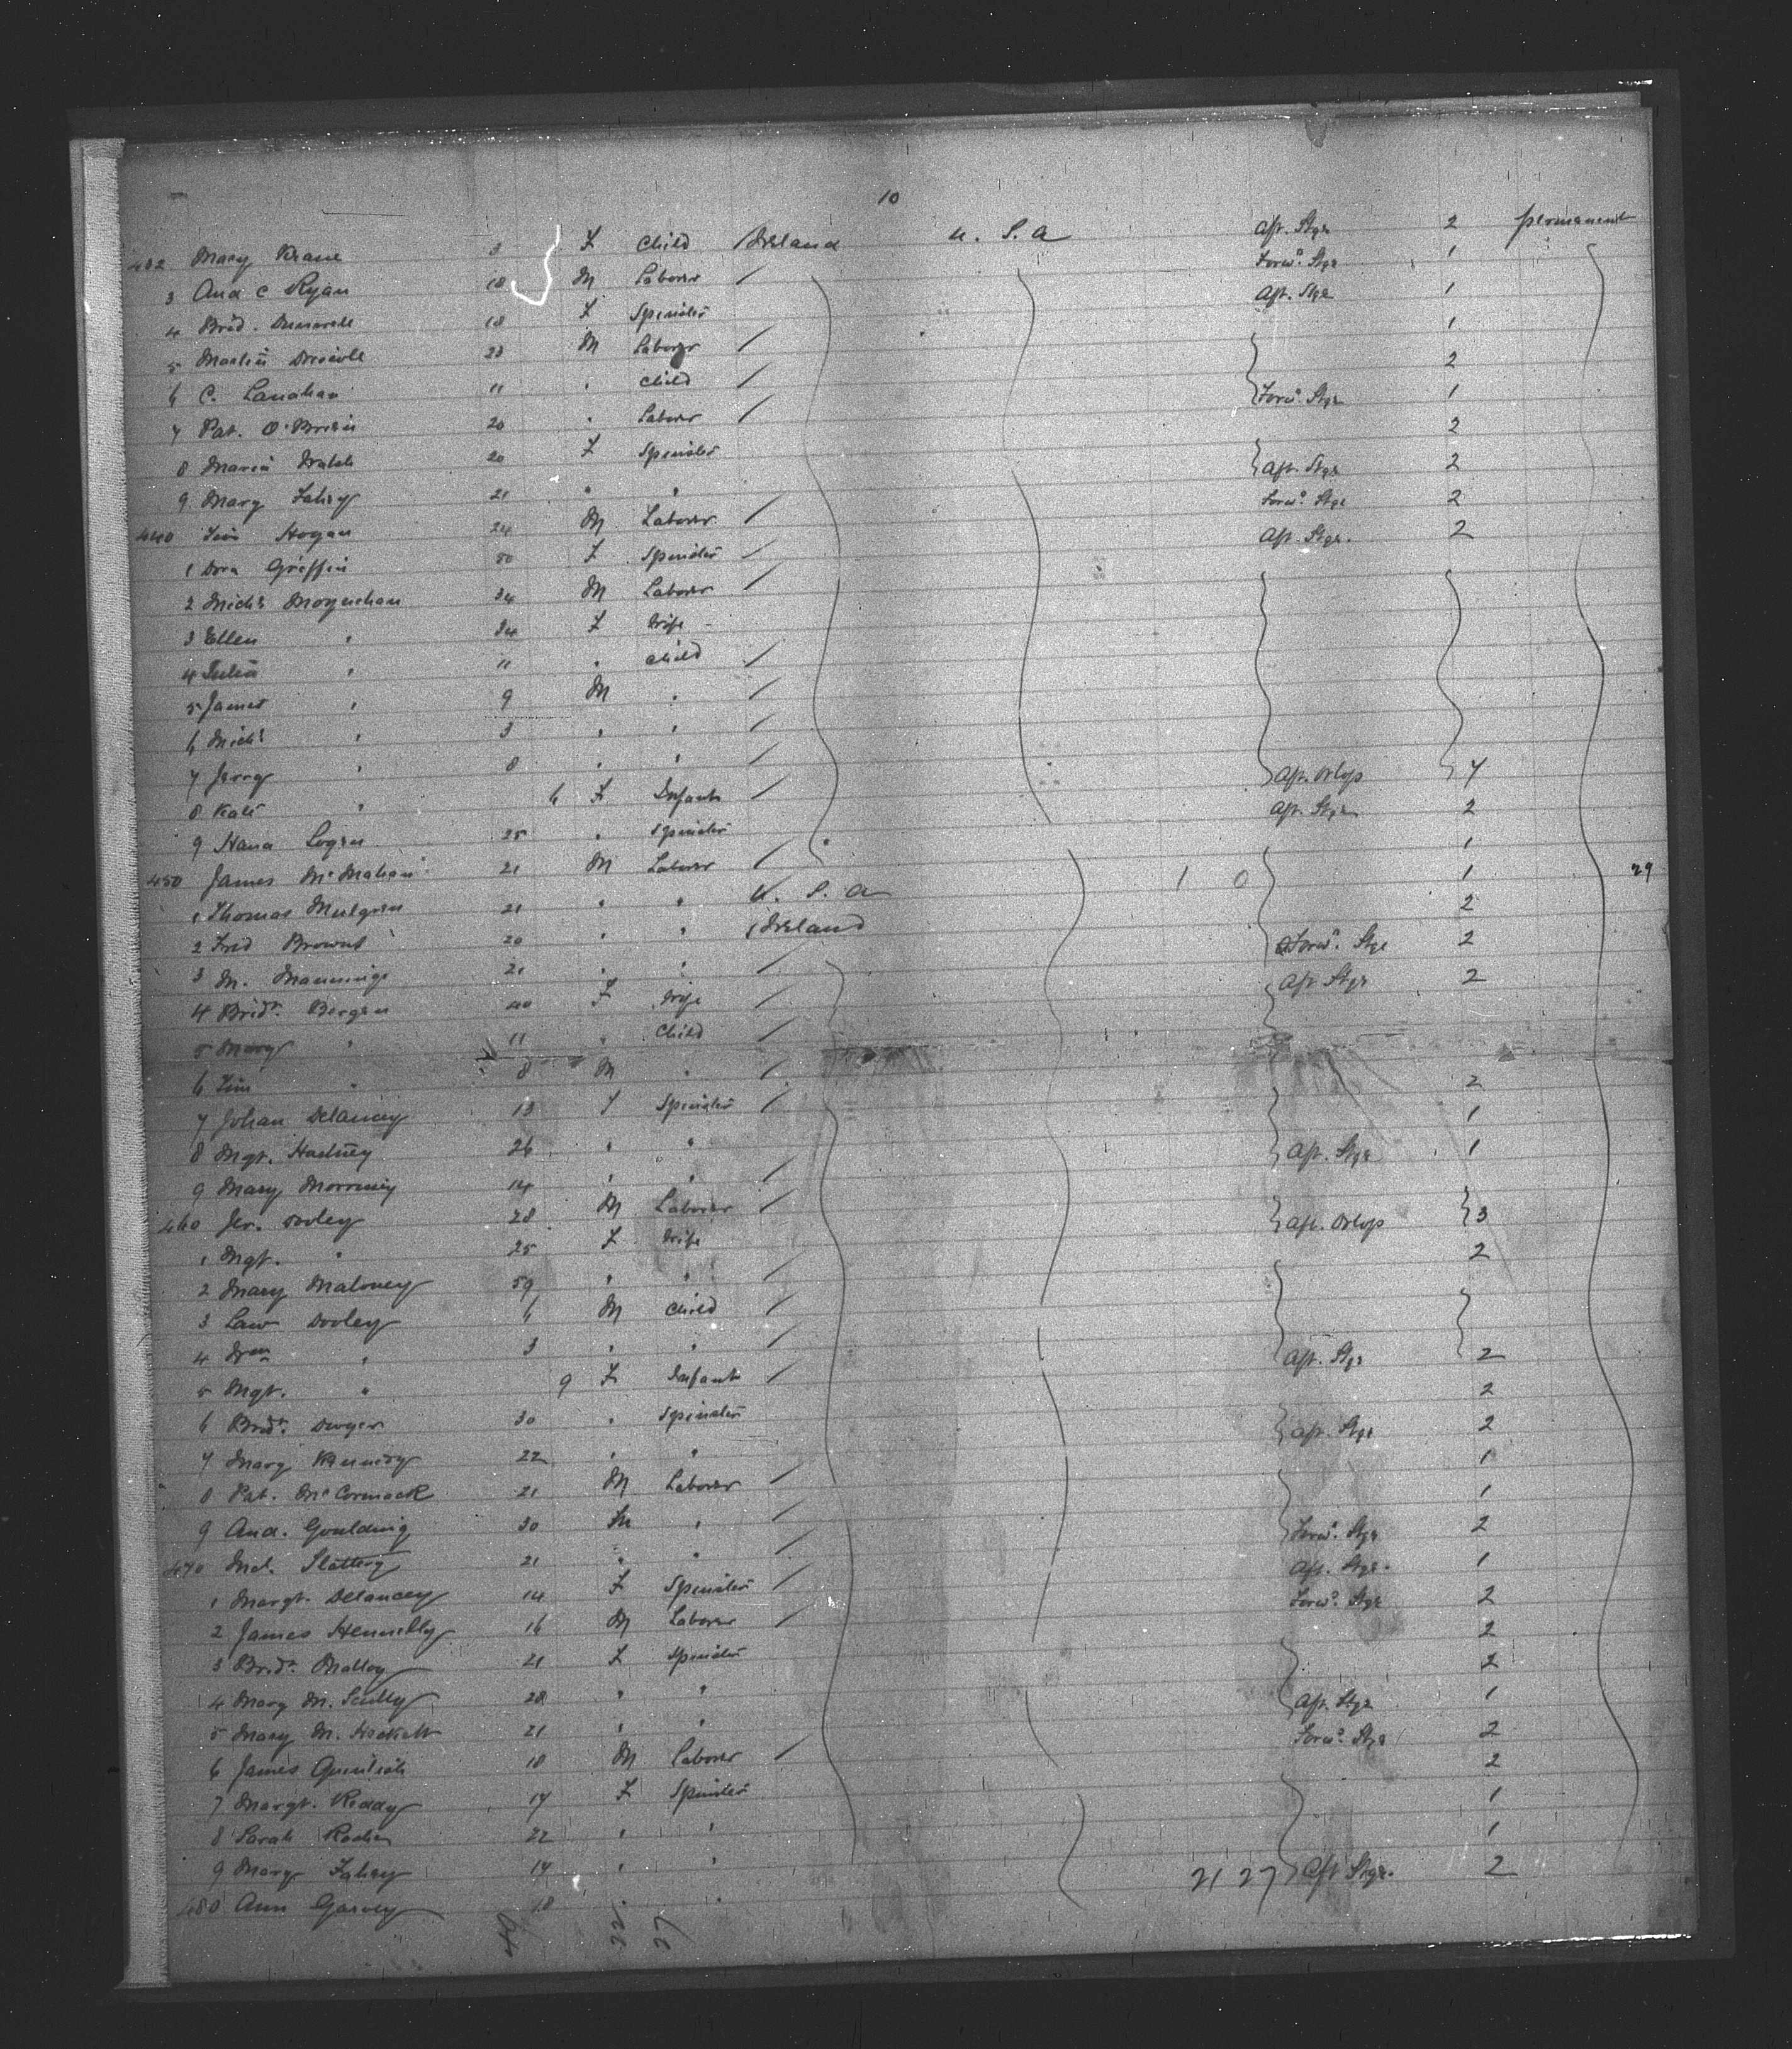 10
432 Mary Keane 3 F Child Ireland U. S. A Aft. Stge 2 permanent
3 And C Ryan 18 M Laborer / Forwd. Stge 1
4 Brid. 18 F Spinster Aft. Stge 1
5 Martin 23 M Laborer / 1
6 C. Lanahan 11 " Child / 2
7 Pat. O'Brien 20 " Laborer / Forwd. Stge 1
8 Maria Walsh 20 F Spinster 2
9 Mary Fahey 21 " " Aft. Stge 2
440 Tim Hogan 24 M Laborer / Forwd. Stge 2
1 Dora Griffin 50 F Spinster / Aft. Stge. 2
2 Michl Moynihan 34 M Laborer /
3 Ellen " 34 F Wife
4 Julia " 11 " Child /
5 James " 9 M " /
6 Michl " 3 " " /
7 Jerry " 8 " " /
8 Kate " 6 F Infant / Aft. Orlop 7
9 Hana Logan 25 " Spinster Aft. Stge 2
450 James McMahon 21 M Laborer / 1
1 Thomas 21 " " U. S. A 1 0 1 29
2 Fred 20 " " Ireland 2
3 M. Mannings 21 " " / Forwd. Stge 2
4 Bridt. Bergen 40 F Wife / Aft Stge 2
5 Mary " 11 " Child /
6 Tim " 8 M " /
7 Johan Delancey 13 F Spinster / 2
8 Mgt. 26 " " 1
9 Mary 14 " " / Aft. Stge 1
460 Jer. Dooley 28 M Laborer /
1 Mgt. " 25 F Wife Aft. Orlop 3
2 Mary Maloney 59 " " / 2
3 Law Dooley 6 M Child /
4 Wm " 3 " " /
5 Mgt. " 9 F Infant / Aft. Stge 2
6 Bridt. Dwyer 30 " Spinster 2
7 Mary Kennedy 22 " " Aft. Stge 2
8 Pat. McCormack 21 M Laborer / 1
9 And. Goulding 30 M " / 1
470 Slattery 21 " " / Forwd. Stge 2
1 Margt. Delancey 14 F Spinster / Aft. Stge. 1
2 James Hennelly 16 M Laborer / Forwd. Stge 2
3 Bridt. Malloy 21 F Spinster 2
4 Mary M. Scully 28 " " 2
5 Mary M. 21 " " Aft. Stge 1
6 James 18 M Laborer / Forwd. Stge 2
7 Margt. Reddy 17 F Spinster 2
8 Sarah 22 " " 1
9 Mary Fahey 17 " " 1
480 Ann Garvey 18 " " 21 27 Aft Stge. 2
49 22 27